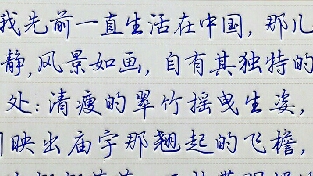 我先前一直生活在中国,那儿
静,风景如画,自有其独特的
处:清瘦的翠竹摇曳生姿,
映出庙宇那翘起的飞檐,